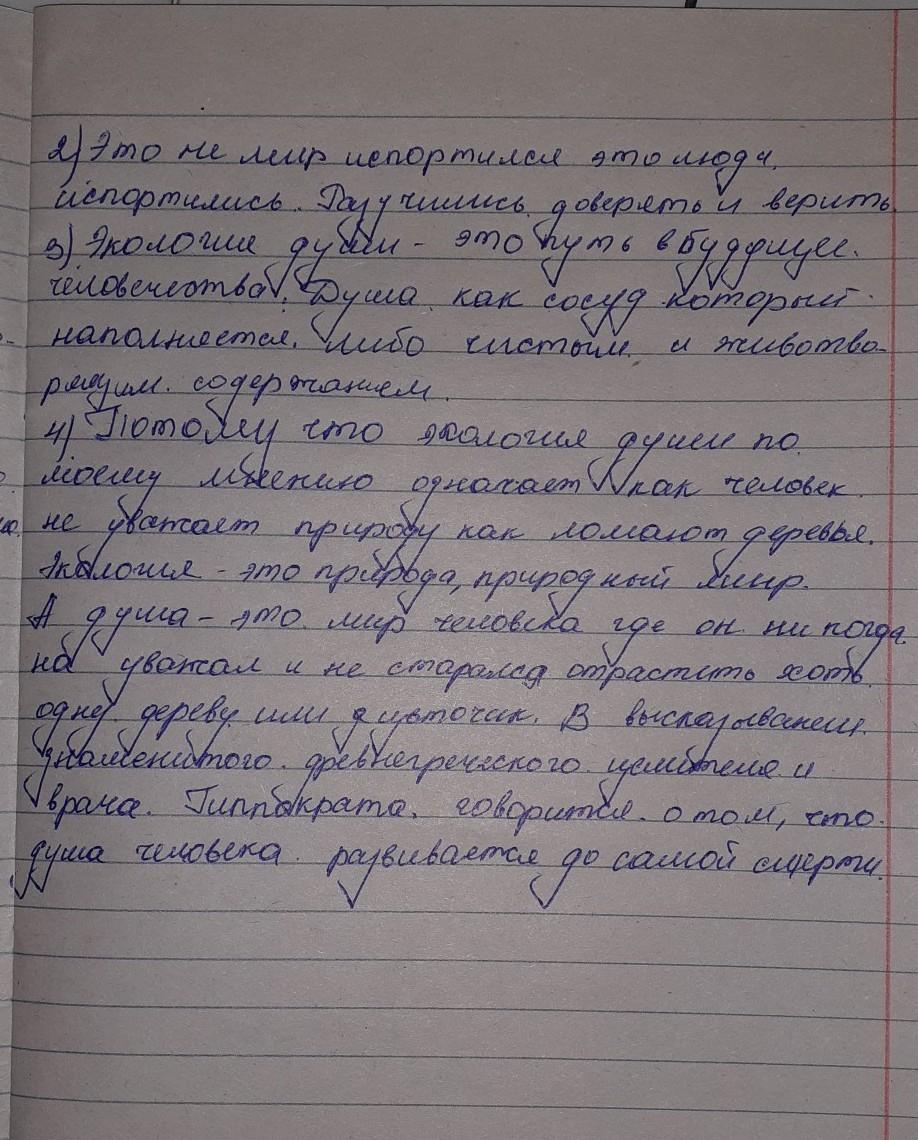 2) Это не мир испортился это люди.
испортились. Разучились. доверять и верить.
3) Экология души - это путь в буддущее.
человечества. Душа как сосуд который
наполняется. либо чистым. и животво-
рящим. содержанием.
4) Потому что экология души по
моему мнению означает как человек.
не уважает природу как ломают деревья.
Экология - это природа, природный мир.
А душа - это. мир человека где он ни когда.
не уважал и не старался отрастить хоть.
одну. дереву. или цветочик. В высказывании.
знаменитого. древнегреческого. целителя и
врача. Гиппократа. говорится. о том, что.
душа человека. развивается до самой смерти.